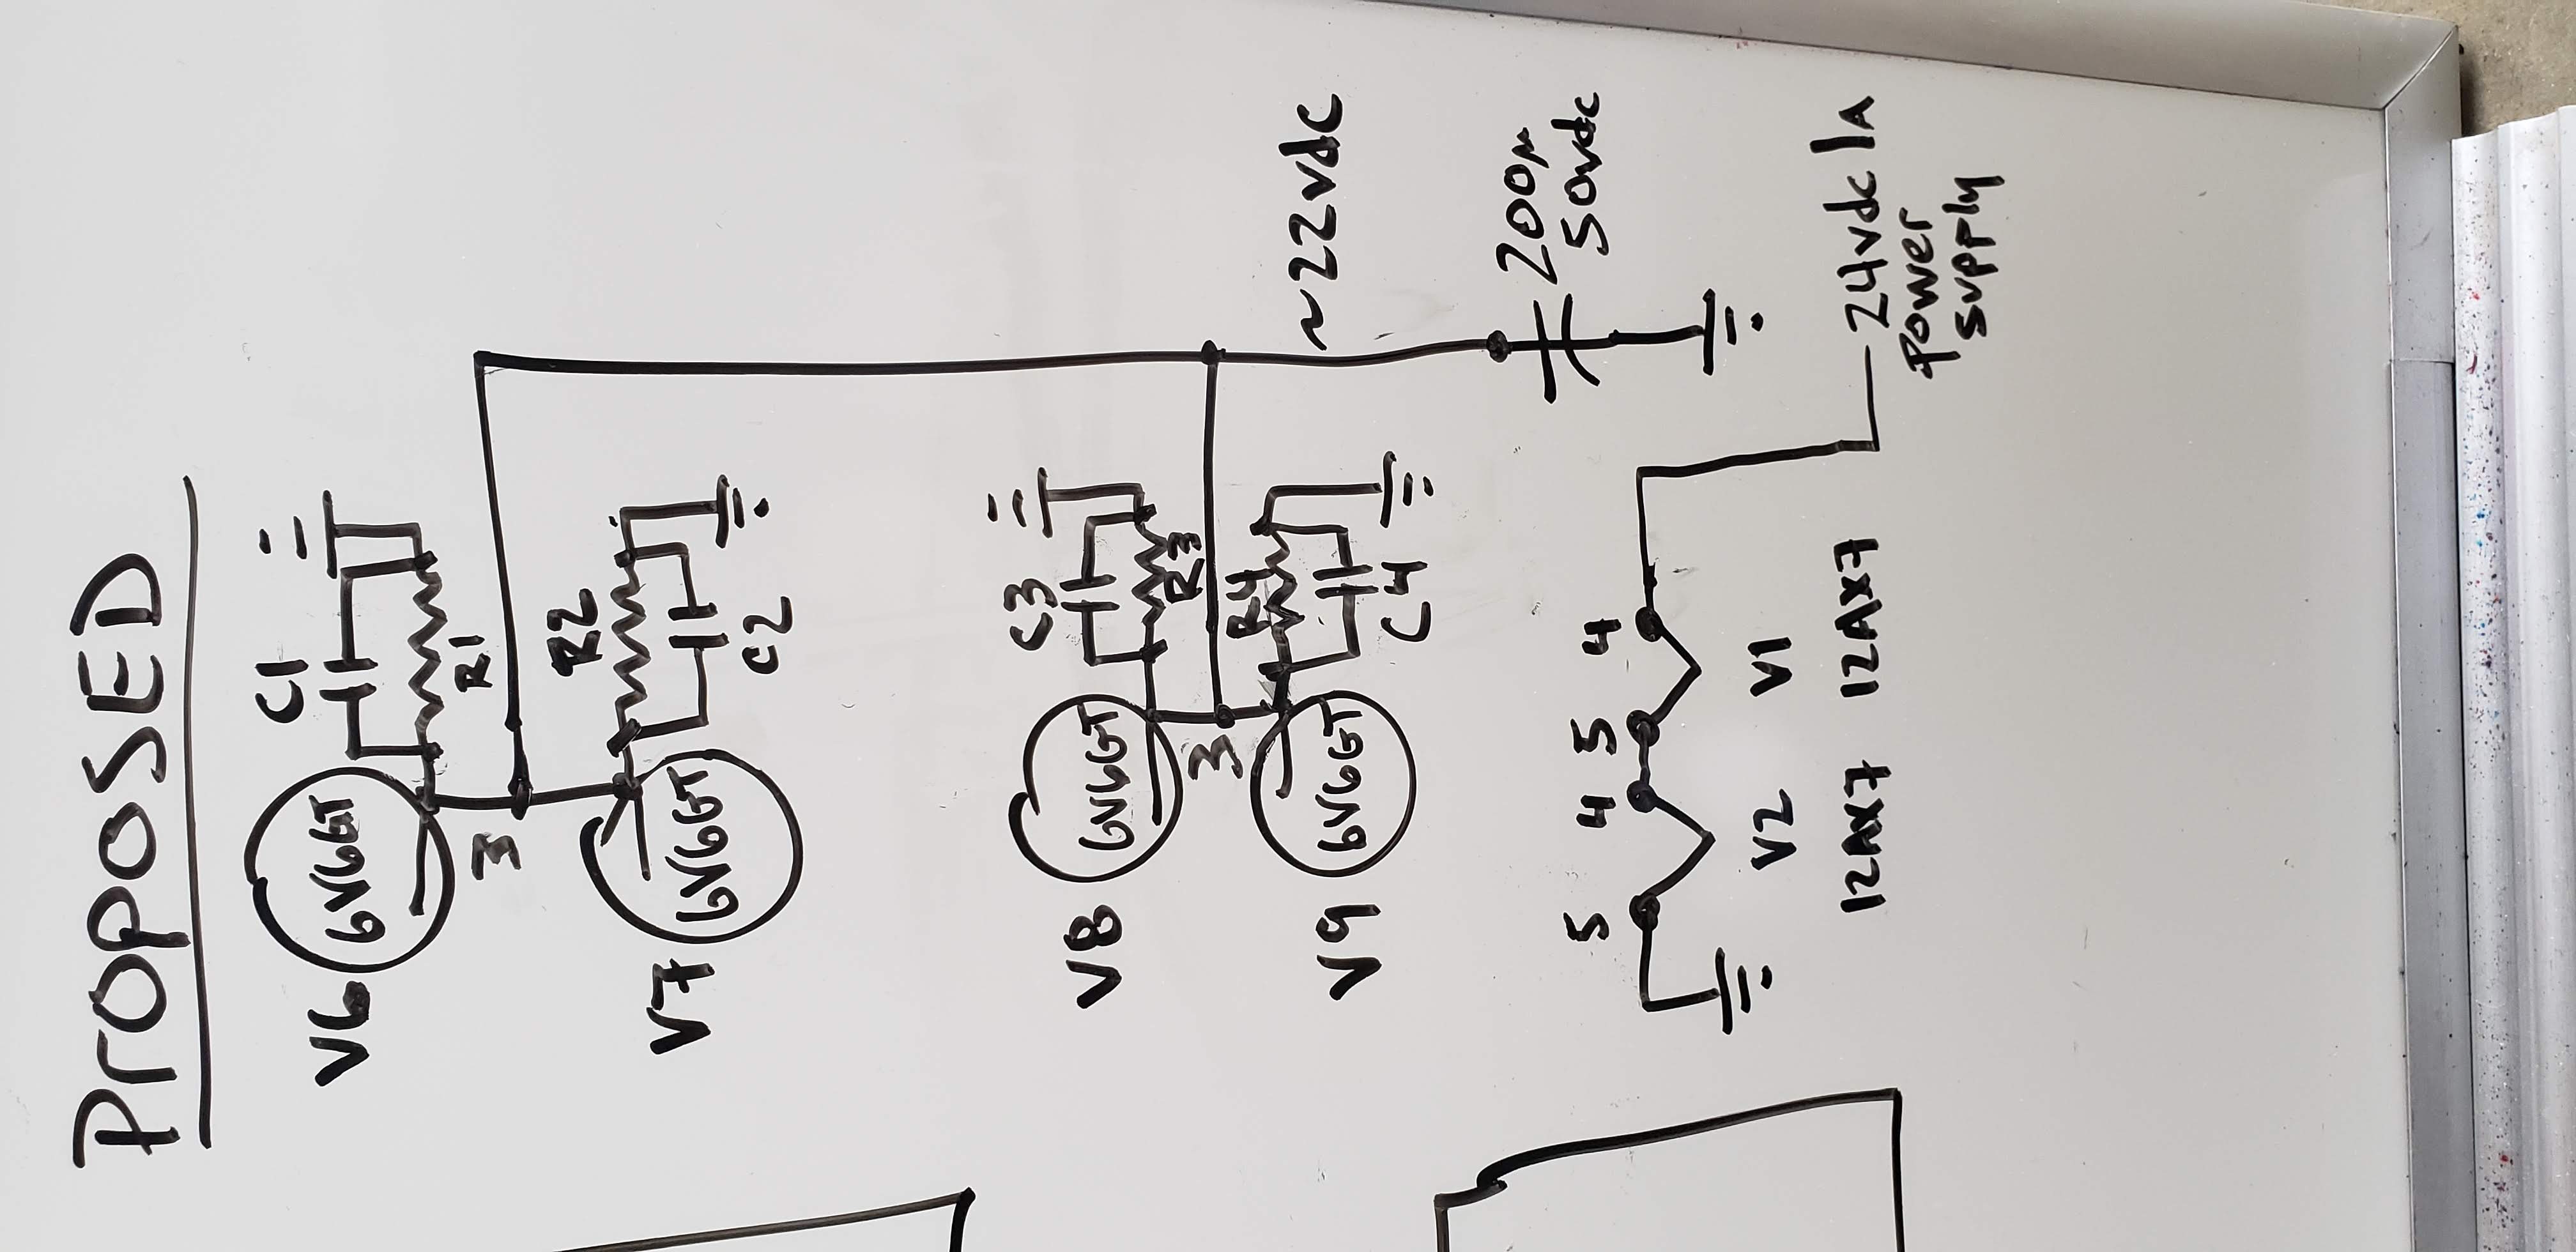 PrOPOSED
C1
V6 6V6GT
R1
3
R2
V7 6V6GT
C2
C3
V8 6V6GT
R3
3
R4
~22vdc
V9 6V6GT
C4
200µ
50vdc
5 4 5 4
V2 V1
12AX7 12AX7
24vdc 1A
Power
supply